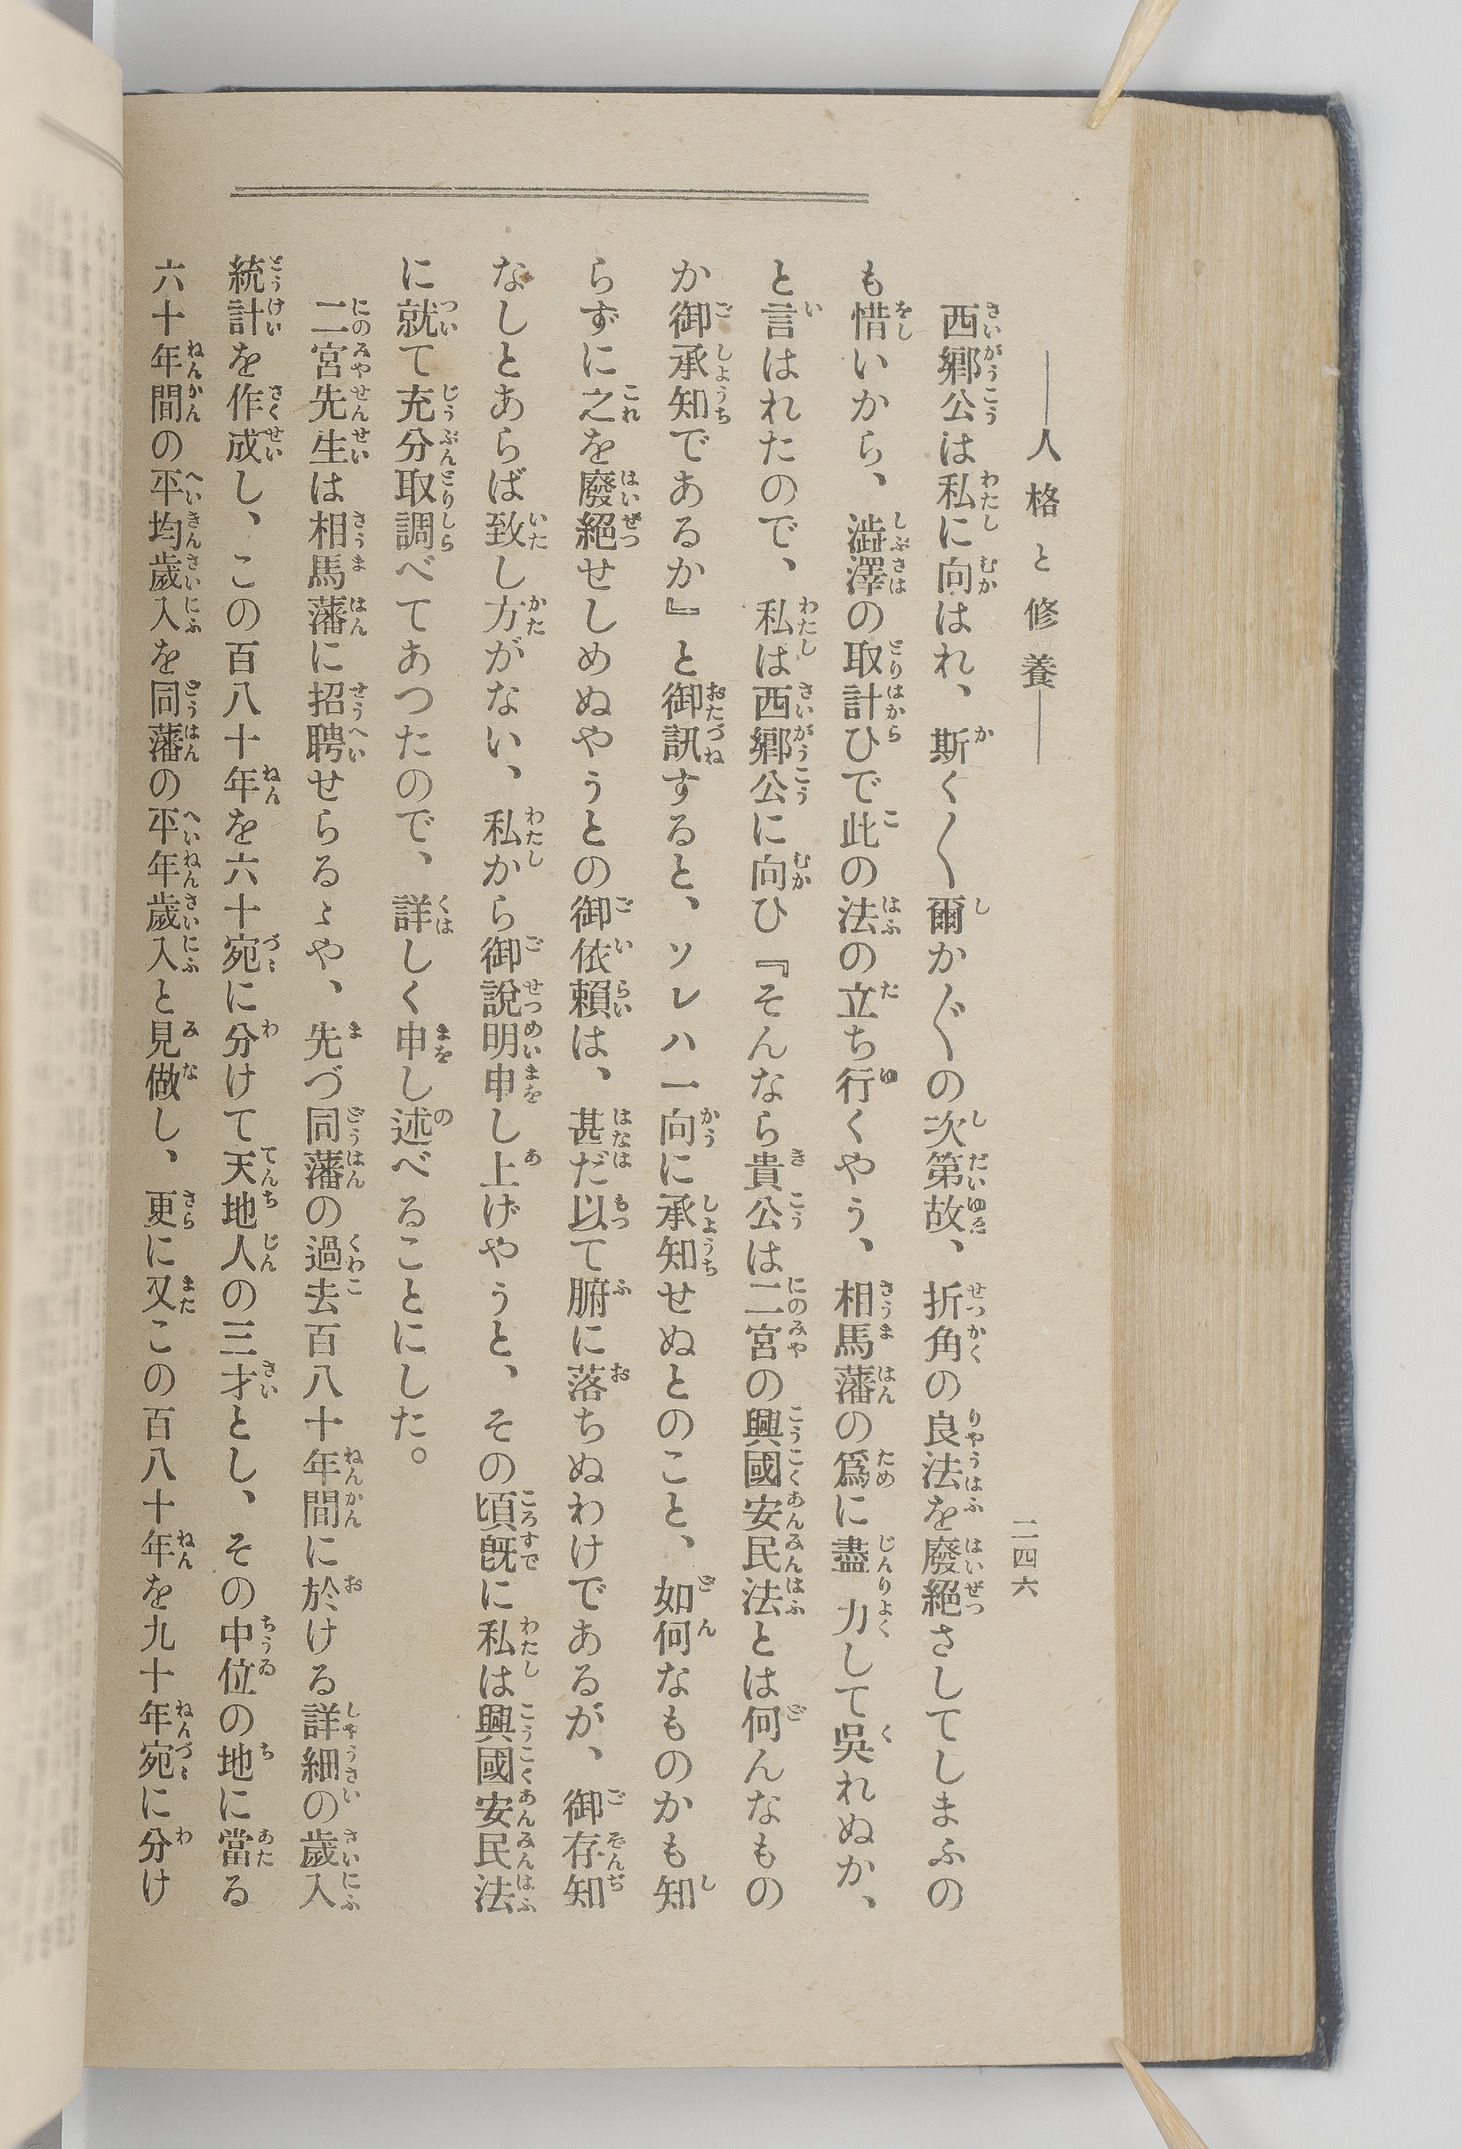 ――人格と修養――
二四六
西鄕公は私に向はれ、斯く〳〵爾か〴〵の次第故、折角の良法を廢絕さしてしまふの
も惜いから、澁澤の取計ひで此の法の立ち行くやう、相馬藩の爲に盡力して吳れぬか、
と言はれたので、私は西鄕公に向ひ『そんなら貴公は二宮の興國安民法とは何んなもの
か御承知であるか』と御訊すると、ソレハ一向に承知せぬとのこと、如何なものかも知
らずに之を廢絕せしめぬやうとの御依賴は、甚だ以て腑に落ちぬわけであるが、御存知
なしとあらば致し方がない、私から御說明申し上げやうと、その頃旣に私は興國安民法
に就て充分取調べてあつたので、詳しく申し述べることにした。
二宮先生は相馬藩に招聘せらるゝや、先づ同藩の過去百八十年間に於ける詳細の歲入
統計を作成し、この百八十年を六十宛に分けて天地人の三才とし、その中位の地に當る
六十年間の平均歲入を同藩の平年歲入と見做し、更に又この百八十年を九十年宛に分け